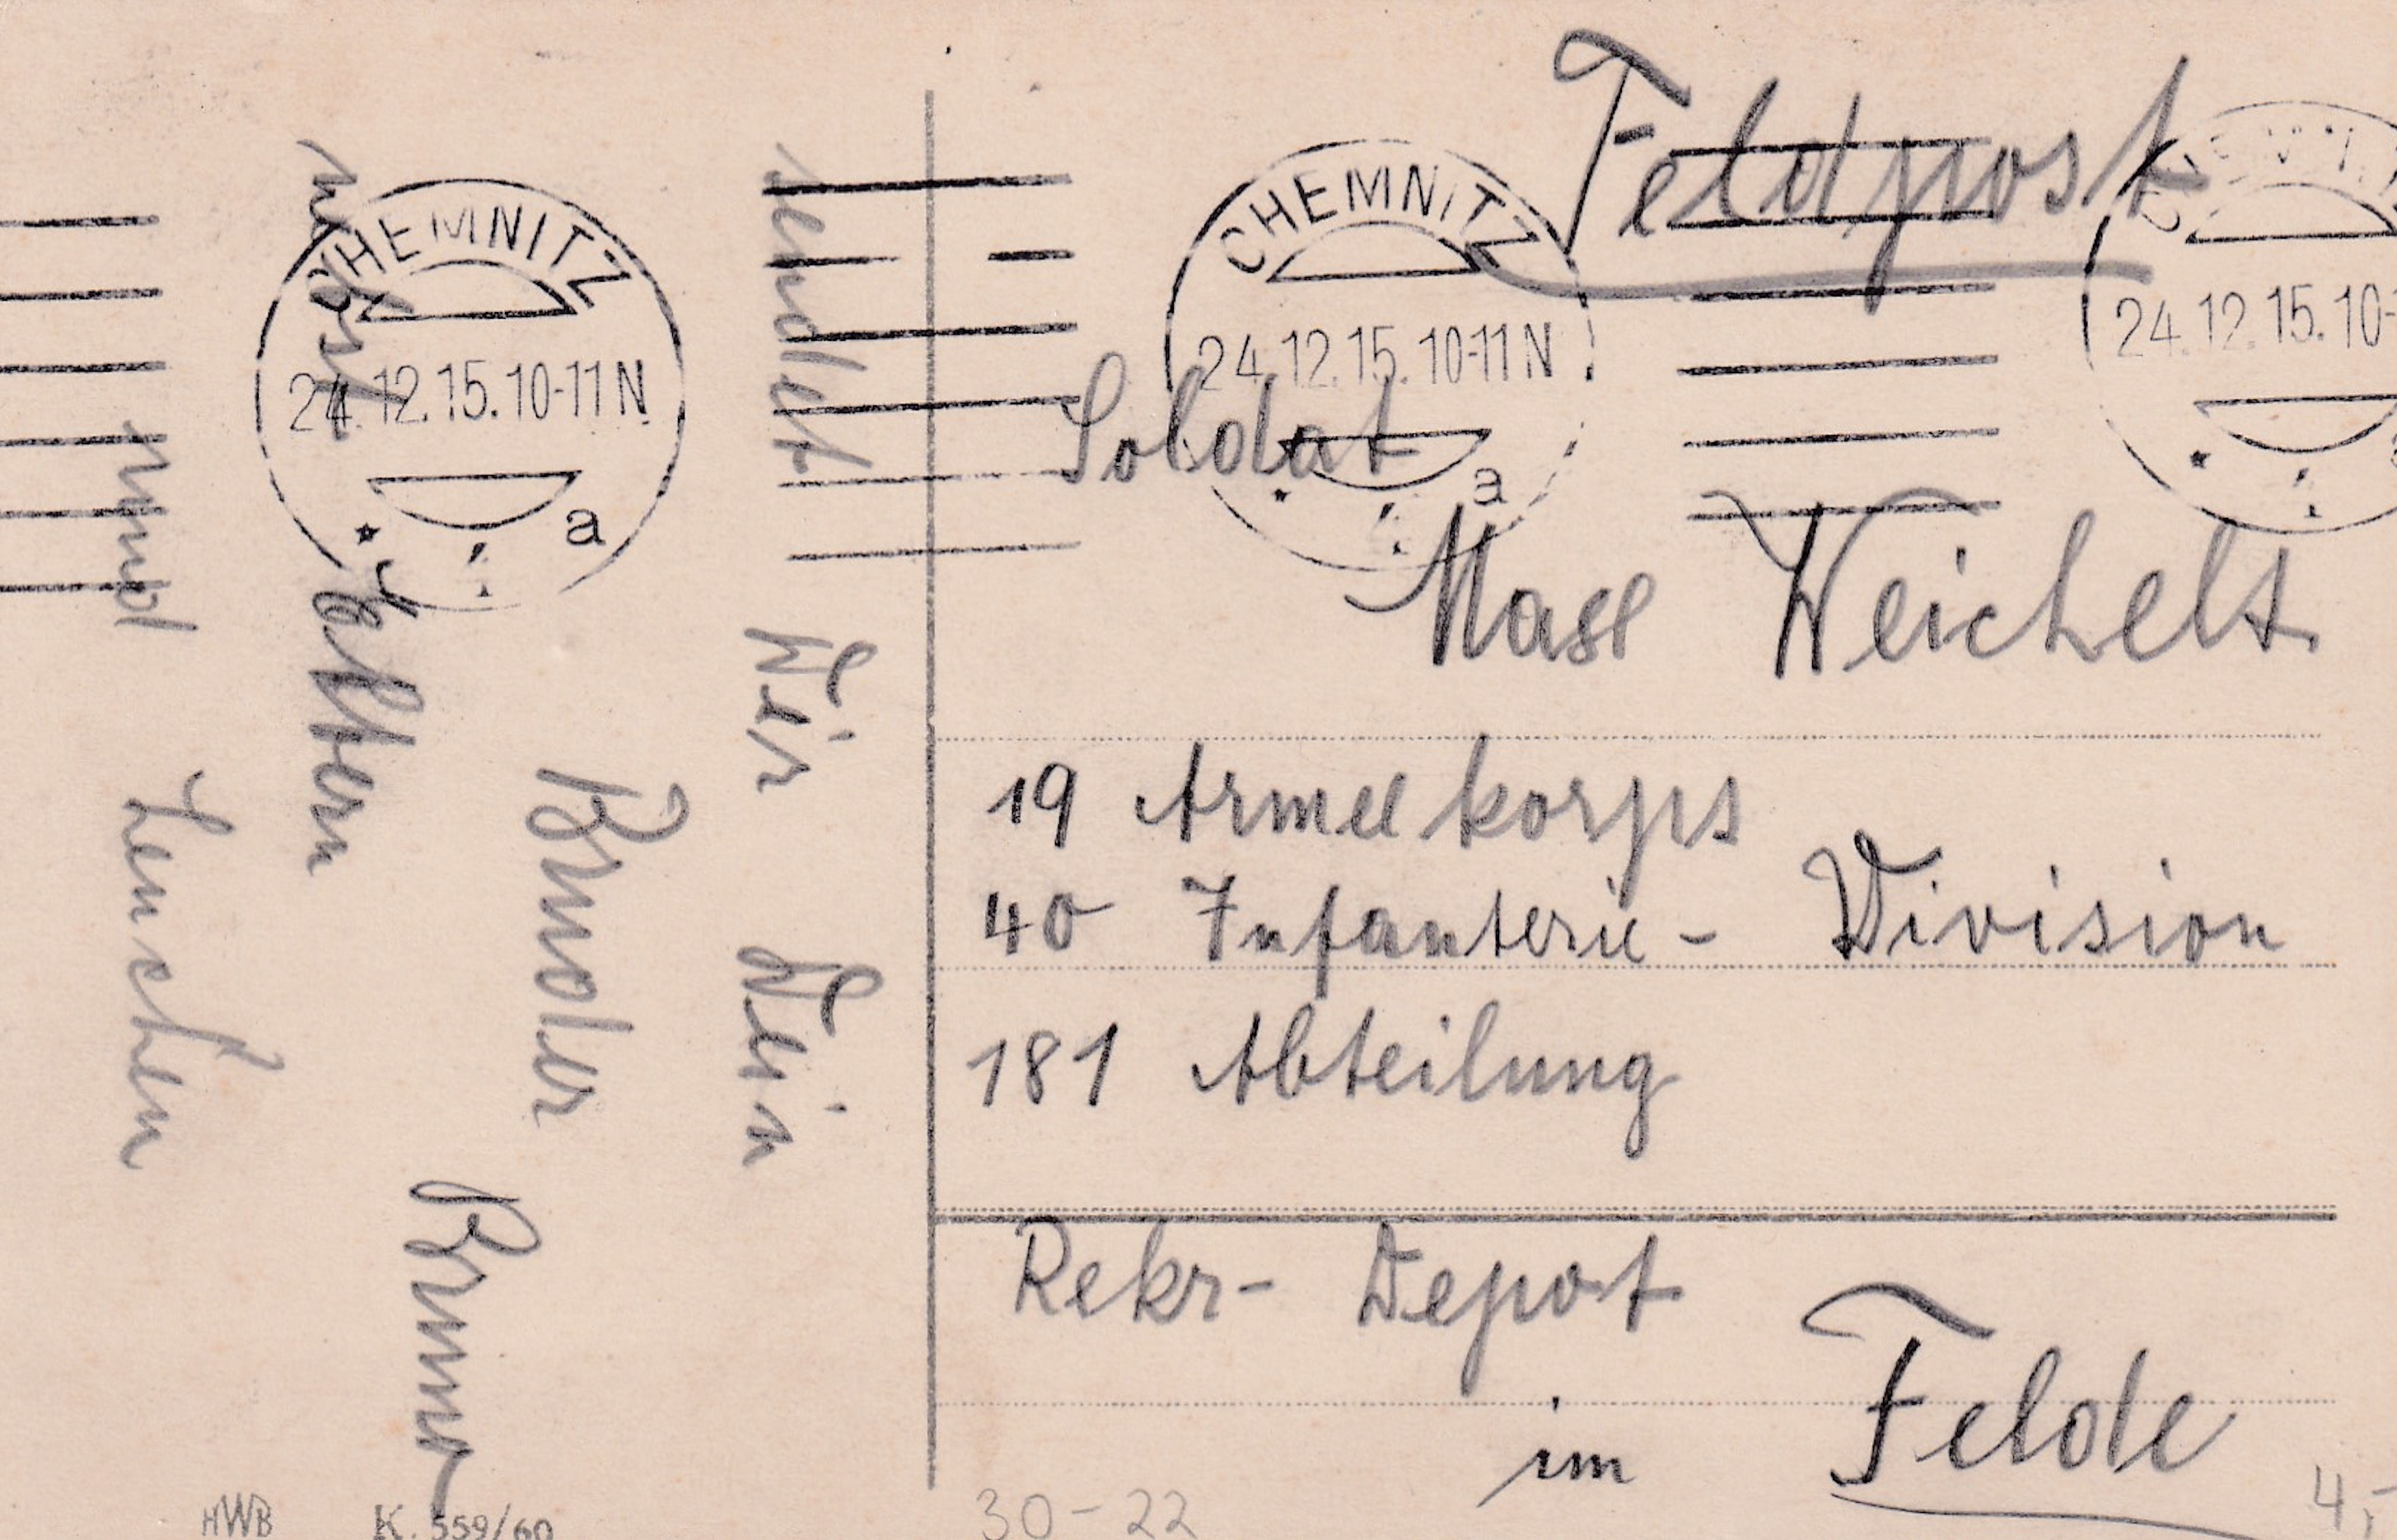 sendet Dir Dein
Bruder
Bruno
nebst Eltern
und Lenchen
CHEMNITZ
24.12.15.10-11N
a
HWB K. 559/60
Feldpost
CHEMNITZ
24.12.15.10-11N
a
24.12.15.10-
Soldat
Weichelt
19 Armeekorps
40 Infanterie- Division
181 Abteilung
Rekr- Depot
im Felde
30-22
4,-